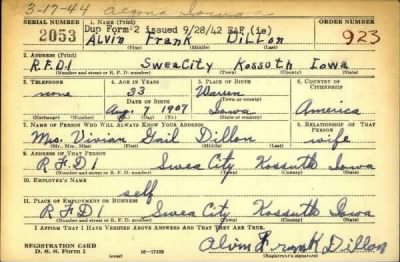 3-17-44 Algona Iowa
SERIAL NUMBER 1. NAME (Print) ORDER NUMBER
Dup Form 2 issued 9/28/42
2053 Alvin Frank Dillon 923
(First) (Middle) (Last)
2. ADDRESS (Print)
R.F.D.1 Swea City Kossuth Iowa
(Number and street or R. F. D. number) (Town) (County) (State)
3. TELEPHONE 4. AGE IN YEARS 5. PLACE OF BIRTH 6. COUNTRY OF CITIZENSHIP
none 33 Warren
DATE OF BIRTH (Town or county)
Aug. 7 1907 Iowa America
(Exchange) (No.) (Mo.) (Day) (Yr.) (State or country)
7. NAME OF PERSON WHO WILL ALWAYS KNOW YOUR ADDRESS 8. RELATIONSHIP OF THAT PERSON
Mrs. Vivian Gail Dillon wife
(Mr., Mrs., Miss) (First) (Middle) (Last)
9. ADDRESS OF THAT PERSON
R F D 1 Swea City Kossuth Iowa
(Number and street or R. F. D. number) (Town) (County) (State)
10. EMPLOYER'S NAME
self
11. PLACE OF EMPLOYMENT OR BUSINESS
R F D 1 Swea City Kossuth Iowa
(Number and street or R. F. D. number) (Town) (County) (State)
I AFFIRM THAT I HAVE VERIFIED ABOVE ANSWERS AND THAT THEY ARE TRUE.
REGISTRATION CARD
D. S. S. Form 1 (over) Alvin Frank Dillon
(Registrant's signature)